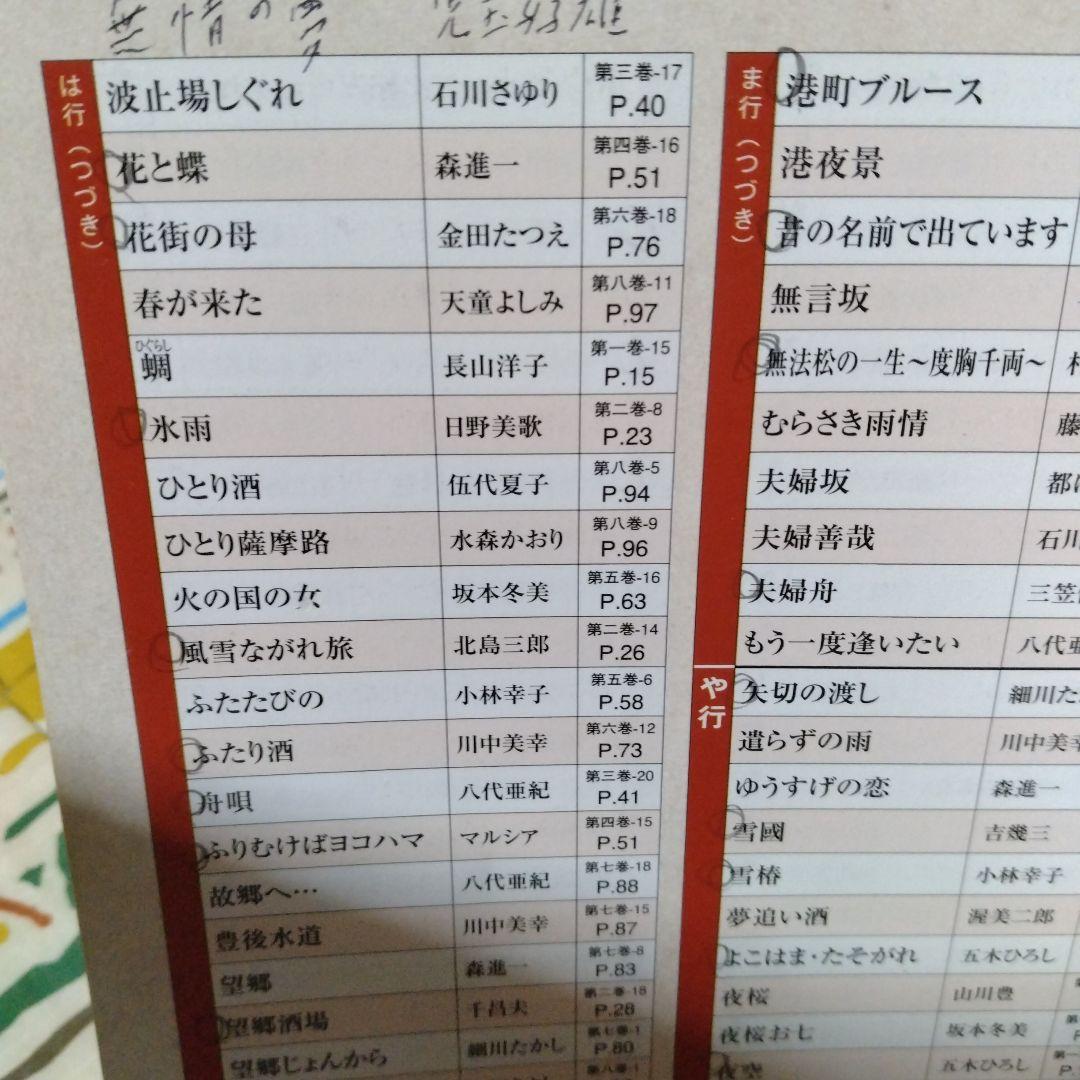 無情の夢　児玉好雄
は行（つづき）
波止場しぐれ 石川さゆり 第三巻-17 P.40
花と蝶 森進一 第四巻-16 P.51
花街の母 金田たつえ 第六巻-18 P.76
春が来た 天童よしみ 第八巻-11 P.97
ひぐらし
蜩 長山洋子 第一巻-15 P.15
氷雨 日野美歌 第二巻-8 P.23
ひとり酒 伍代夏子 第八巻-5 P.94
ひとり薩摩路 水森かおり 第八巻-9 P.96
火の国の女 坂本冬美 第五巻-16 P.63
風雪ながれ旅 北島三郎 第二巻-14 P.26
ふたたびの 小林幸子 第五巻-6 P.58
ふたり酒 川中美幸 第六巻-12 P.73
舟唄 八代亜紀 第三巻-20 P.41
ふりむけばヨコハマ マルシア 第四巻-15 P.51
故郷へ… 八代亜紀 第七巻-18 P.88
豊後水道 川中美幸 第七巻-15 P.87
望郷 森進一 第七巻-8 P.83
望郷酒場 千昌夫 第二巻-18 P.28
望郷じょんから 細川たかし 第七巻-1 P.80
第八巻-1
ま行（つづき）
港町ブルース
港夜景
昔の名前で出ています
無言坂
無法松の一生～度胸千両～ 村
むらさき雨情 藤
夫婦坂 都は
夫婦善哉 石川
夫婦舟 三笠
もう一度逢いたい 八代亜
や行
矢切の渡し 細川た
遣らずの雨 川中美幸
ゆうすげの恋 森進一
雪國 吉幾三
雪椿 小林幸子
夢追い酒 渥美二郎
よこはま・たそがれ 五木ひろし
夜桜 山川豊
夜桜お七 坂本冬美 第
夜空 五木ひろし 第一 P.